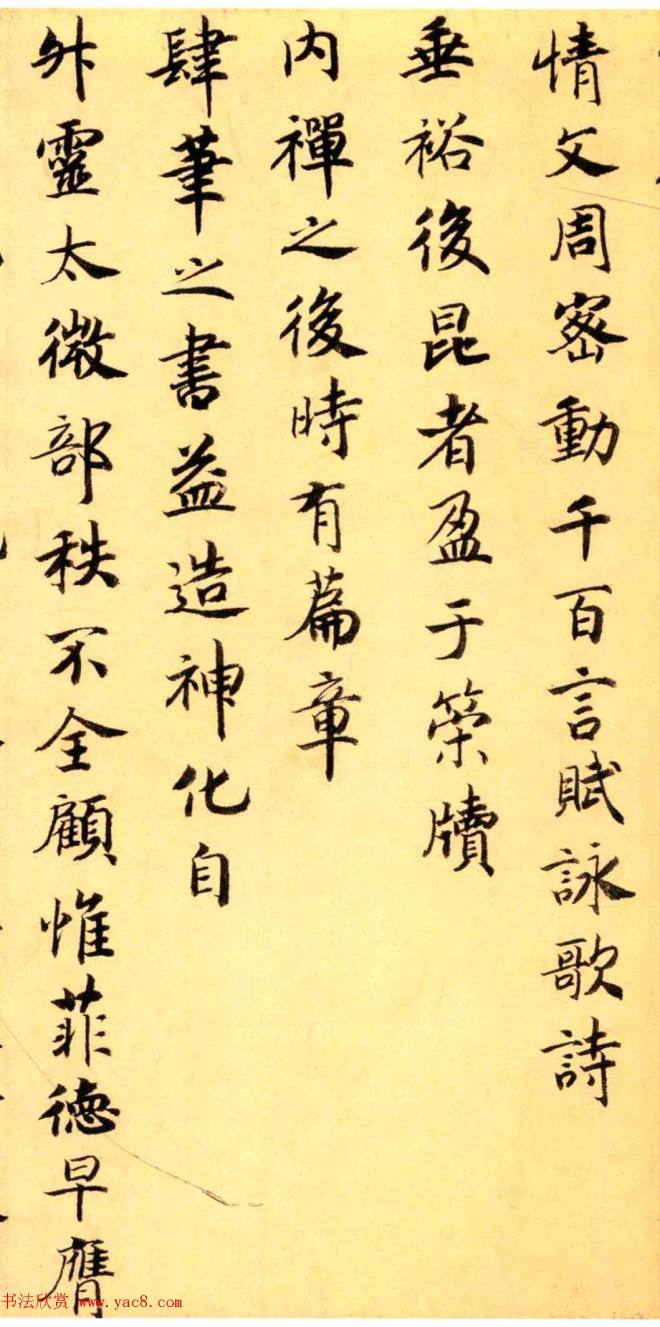 情文周密動千百言賦詠歌詩
垂裕後昆者盈于簡牘
内禪之後時有篇章
肆筆之書益造神化自
外靈太微部秩不全顧惟菲德早膺
书法欣赏 www.yac8.com